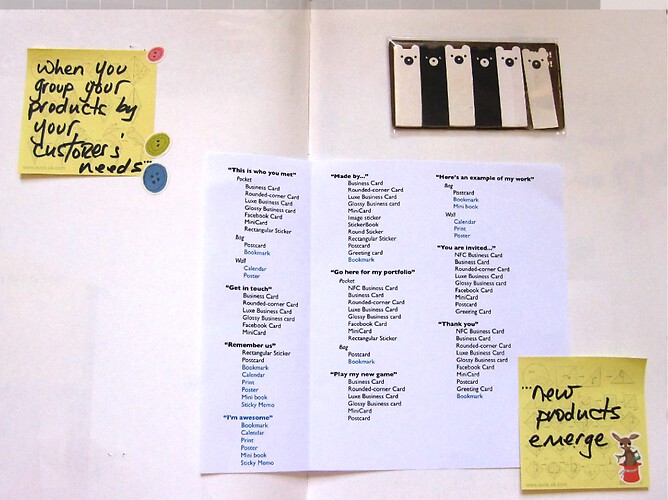 when you
group your
products by
your
customers'
needs...
www.moo.com
"This is who you met"
Pocket
Business Card
Rounded-corner Card
Luxe Business Card
Glossy Business card
Facebook Card
MiniCard
Rectangular Sticker
Bag
Postcard
Bookmark
Wall
Calendar
Poster
"Get in touch"
Business Card
Rounded-corner Card
Luxe Business Card
Glossy Business card
Facebook Card
MiniCard
"Remember us"
Rectangular Sticker
Postcard
Bookmark
Calendar
Print
Poster
Mini book
Sticky Memo
"I'm awesome"
Bookmark
Calendar
Print
Poster
Mini book
Sticky Memo
"Made by..."
Business Card
Rounded-corner Card
Luxe Business Card
Glossy Business card
MiniCard
Image sticker
StickerBook
Round Sticker
Rectangular Sticker
Postcard
Greeting card
Bookmark
"Go here for my portfolio"
Pocket
NFC Business Card
Business Card
Rounded-corner Card
Luxe Business Card
Glossy Business card
Facebook Card
MiniCard
Rectangular Sticker
Bag
Postcard
Bookmark
"Play my new game"
Business Card
Rounded-corner Card
Luxe Business Card
Glossy Business card
MiniCard
Postcard
"Here's an example of my work"
Bag
Postcard
Bookmark
Mini book
Wall
Calendar
Print
Poster
"You are invited..."
NFC Business Card
Business Card
Rounded-corner Card
Luxe Business Card
Glossy Business card
Facebook Card
MiniCard
Postcard
Greeting Card
"Thank you"
NFC Business Card
Business Card
Rounded-corner Card
Luxe Business Card
Glossy Business card
Facebook Card
MiniCard
Postcard
Greeting Card
Bookmark
...new
products
emerge